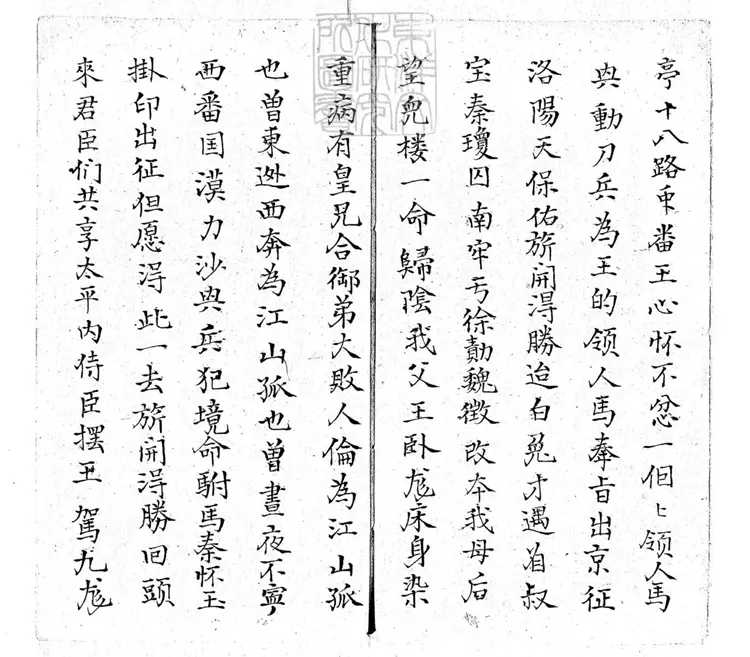 亭十八路番王心怀不忿一個ㄴ领人馬
與動刀兵為王的领人馬奉旨出京征
洛陽天保佑旂開淂勝追白兔才遇着叔
宝秦瓊囚南牢亏徐勣魏徵改本我母后
望兒楼一命歸陰我父王卧龙床身染
重病有皇兄合御弟大敗人倫為江山孤
也曽東迯西奔為江山孤也曽晝夜不寧
西番国漠力沙與兵犯境命駙馬秦怀玉
掛印出征但愿淂此一去旂開淂勝回頭
來君臣们共享太平内侍臣摆王駕九龙